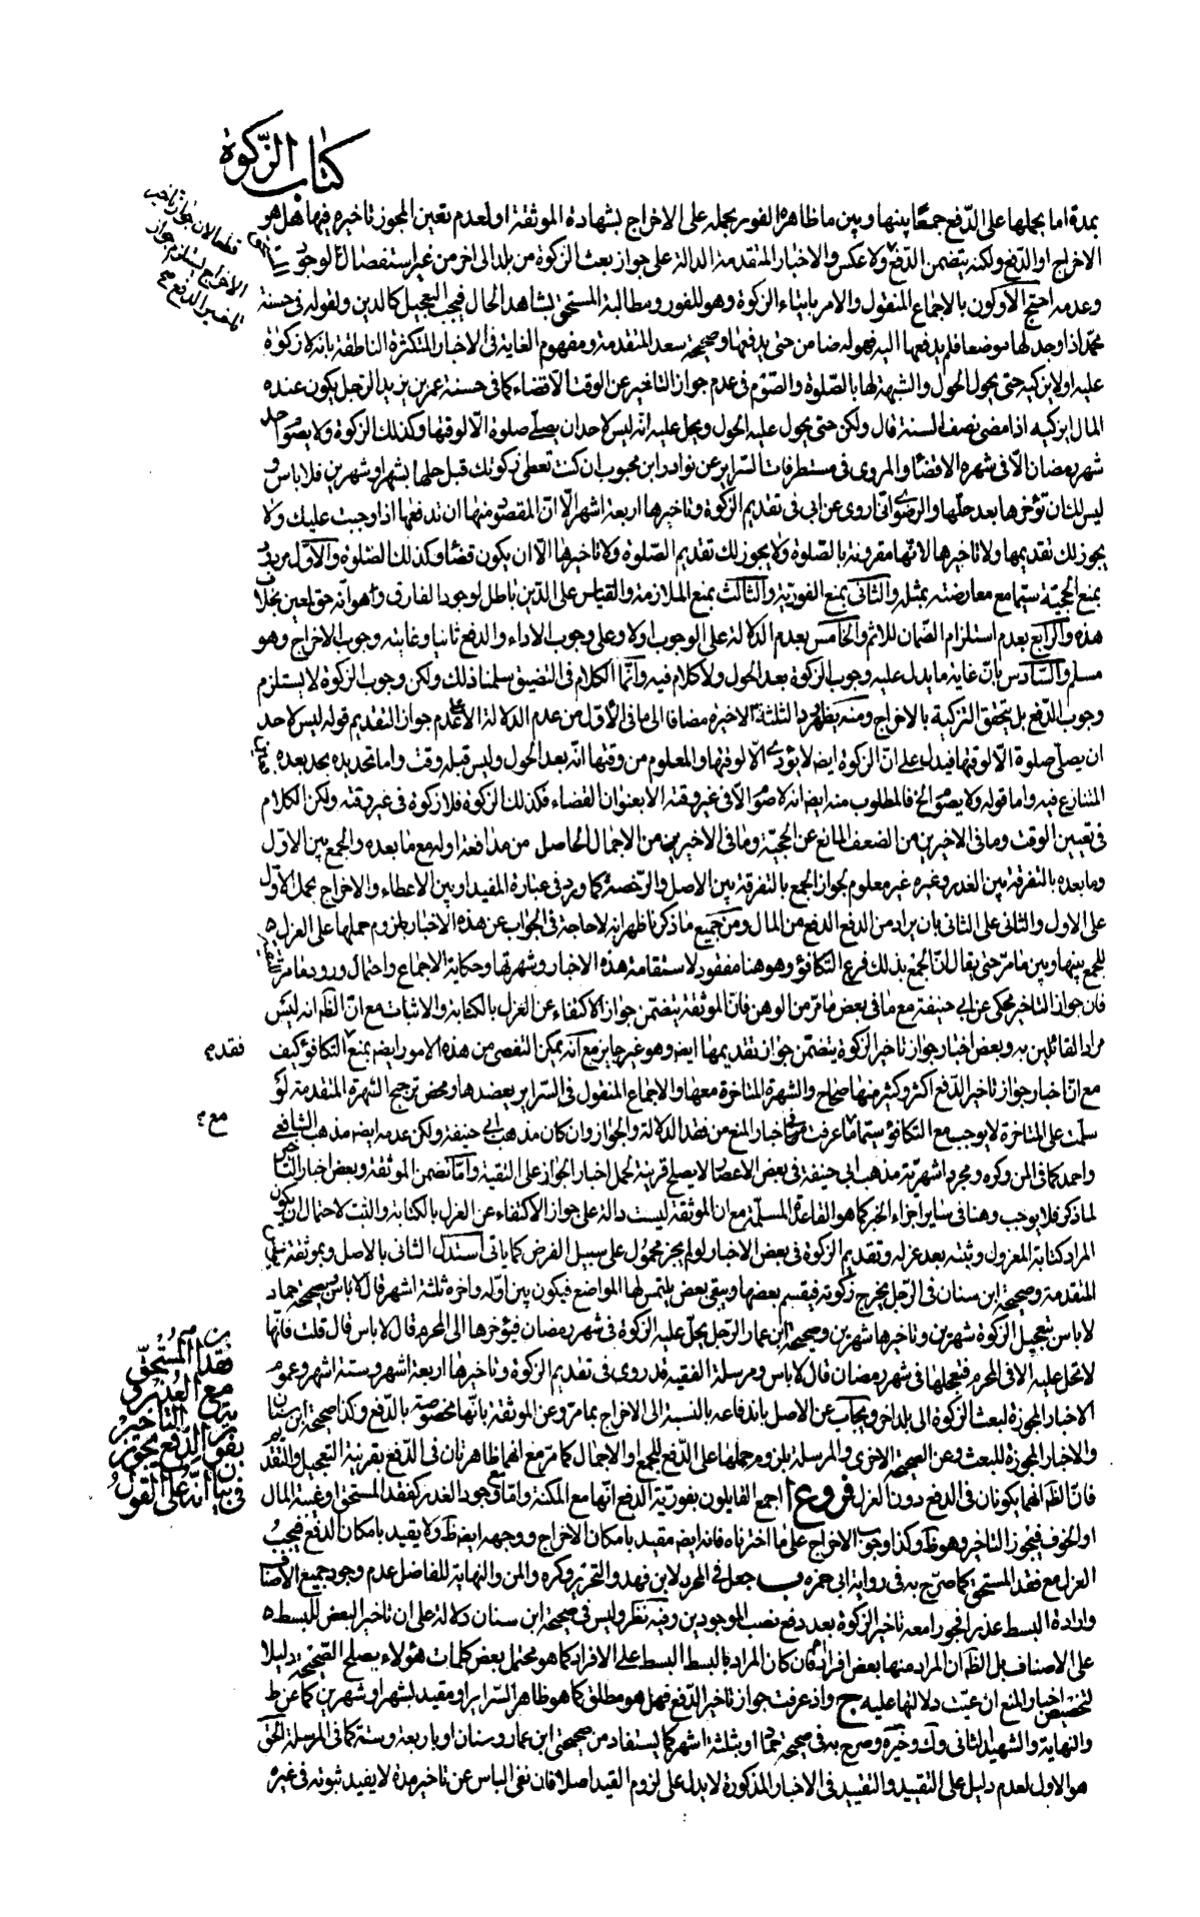 كتاب الزكوة
بمدة اما بحملها على الدفع جمعًا بينها وبين ما ظاهره الفور بحمله على الاخراج بشهادة الموثقة او لعدم تعين المجوز تاخيره فيها هل هو
الاخراج او الدفع ولكنه يتضمن الدفع ولا عكس والاخبار المتقدمة الدالة على جواز بعث الزكوة من بلد الى اخر من غير استفصال الوجوب
وعدمه احتج الاولون بالاجماع المنقول والامر بايتاء الزكوة وهو للفور ومطالبة المستحق بشاهد الحال فيجب التعجيل كالدين ولقوله في حسنة
محمد اذا وجد لها موضعا فلم يدفعها اليه فهو له ضامن حتى يدفعها وصحيحة سعد المتقدمة ومفهوم الغاية في الاخبار المتكثرة الناطقة بانه لا زكوة
عليه او لا يزكيه حتى يحول الحول والشبهة لها بالصلوة والصوم في عدم جواز التاخير عن الوقت الا قضاء كما في حسنة عمر بن يزيد الرجل يكون عنده
المال ايزكيه اذا مضى نصف السنة قال ولكن حتى يحول عليه الحول ويحل عليه انه ليس لاحد ان يصلي صلوة الا لوقتها وكذلك الزكوة ولا يصوم احد
شهر رمضان الا في شهره الا قضاء والمروي في مستطرفات السراير عن نوادر ابن محبوب ان كنت تعطي زكوتك قبل حلها بشهر او شهرين فلا باس و
ليس لك ان تؤخرها بعد حلها والرضوي اني اروي عن ابي في تقديم الزكوة وتاخيرها اربعة اشهر الا ان المقصود منها ان تدفعها اذا وجبت عليك ولا
يجوز لك تقديمها ولا تاخيرها لانها مقرونة بالصلوة ولا يجوز لك تقديم الصلوة ولا تاخيرها الا ان يكون قضاء وكذلك الصلوة والاول يرد
بمنع الحجية سيما مع معارضته بمثله والثاني بمنع الفورية والثالث بمنع الملازمة والقياس على الدين باطل لوجود الفارق وهو انه حق لمعين بخلاف
هذه والرابع بعدم استلزام الضمان للاثم والخامس بعدم الدلالة على الوجوب اولا وعلى وجوب الاداء والدفع ثانيا وغايته وجوب الاخراج وهو
مسلم والسادس بان غاية ما يدل عليه وجوب الزكوة بعد الحول ولا كلام فيه وانما الكلام في التضيق سلمنا ذلك ولكن وجوب الزكوة لا يستلزم
وجوب الدفع بل يتحقق التزكية بالاخراج ومنه يظهر رد الثلثة الاخيرة مضافا الى ما في الاول من عدم الدلالة الا على عدم جواز التقديم قوله ليس لاحد
ان يصلي صلوة الا لوقتها فيدل على ان الزكوة ايضا لا يؤدى الا لوقتها والمعلوم من وقتها انه بعد الحول وليس قبله وقت واما تحديده بحد بعده
المتنازع فيه واما قوله ولا يصوم الخ فالمطلوب منه ايضا انه لا صوم الا في غير وقته الا بعنوان القضاء فكذلك الزكوة فلا زكوة في غير وقته ولكن الكلام
في تعيين الوقت وما في الاخيرين من الضعف المانع عن الحجية وما في الاخير من الاجمال الحاصل من مدافعة اوله مع ما بعده والجمع بين الاول
وما بعده بالتفرقة بين العذر وغيره غير معلوم لجواز الجمع بالتفرقة بين الاصل والرخصة كما ورد في عبارة المفيد او بين الاعطاء والاخراج بحمل الاول
على الاول والثاني على الثاني بان يراد من الدفع الدفع من المال ومن جميع ما ذكرنا ظهر انه لا حاجة في الجواب عن هذه الاخبار بلزوم حملها على العزل
للجمع بينها وبين ما مر حتى يقال ان الجمع بذلك فرع التكافؤ وهو هنا مفقود لاستقامة هذه الاخبار وشهرتها وحكاية الاجماع واحتمال ورود ما مر
فان جواز التاخير محكي عن ابي حنيفة مع ما في بعض ما مر من الوهن فان الموثقة يتضمن جواز الاكتفاء عن العزل بالكتابة والاثبات مع ان الظ انه ليس
مراد القائلين به وبعض اخبار جواز تاخير الزكوة يتضمن جواز تقديمها ايضا وهو غير جايز مع انه يمكن التفصي من هذه الامور ايضا بمنع التكافؤ كيف
مع ان اخبار جواز تاخير الدفع اكثر وكثير منها صحاح والشهرة المتاخرة معها والاجماع المنقول في السراير يعضدها ومحض ترجيح الشهرة المتقدمة لو
سلمت على المتاخرة لا يوجب مع التكافؤ سيما ما عرفت في اخبار المنع من فقد الدلالة والجواز وان كان مذهب ابي حنيفة ولكن عدمه ايضا مذهب الشافعي
واحمد كما في المن وكره ومجرد اشهرية مذهب ابي حنيفة في بعض الاعصار لا يصلح قرينة لحمل اخبار الجواز على التقية واما تضمن الموثقة وبعض اخبار التاخير
لما ذكر فلا يوجب وهنا في ساير اجزاء الخبر كما هو القاعدة المسلمة مع ان الموثقة ليست دالة على جواز الاكتفاء عن العزل بالكتابة والثبت لاحتمال ان يكون
المراد كتابة المعزول وثبته بعد عزله وتقديم الزكوة في بعض الاخبار لو لم يجز محمول على سبيل الفرض كما ياتي استدل الثاني بالاصل وبموثقة
المتقدمة وصحيحة ابن سنان في الرجل يخرج زكوته فيقسم بعضها ويبقى بعض يلتمس لها المواضع فيكون بين اوله واخره ثلثة اشهر قال لا باس وصحيحة حماد
لا باس بتعجيل الزكوة شهرين وتاخيرها شهرين وصحيحة ابن عمار الرجل يحل عليه الزكوة في شهر رمضان فيؤخرها الى المحرم قال لا باس قال قلت فانها
لا تحل عليه الا في المحرم فيعجلها في شهر رمضان قال لا باس ومرسلة الفقيه قد روى في تقديم الزكوة وتاخيرها اربعة اشهر وستة اشهر وعموم
الاخبار المجوزة لبعث الزكوة الى بلد اخر ويجاب عن الاصل باندفاعه بالنسبة الى الاخراج بما مر وعن الموثقة بانها مخصوصة بالدفع وكذا صحيحة ابن سنان
والاخبار المجوزة للبعث وعن الصحيحة الاخرى والمرسلة بلزوم حملها على الدفع للجمع والاجمال كما مر مع انهما ظاهرتان في الدفع بقرينة التعجيل والتقديم
فان الظ انهما يكونان في الدفع دون العزل فروع ا اجمع القايلون بفورية الدفع انها مع المكنة واما مع وجود العذر كفقد المستحق او غيبة المال
او الخوف فيجوز التاخير وهو ظ وكذا وجوب الاخراج على ما اخترناه فانه ايضا مقيد بامكان الاخراج ووجهه ايضا ظ ولا يقيد بامكان الدفع فيجب
العزل مع فقد المستحق كما صرح به في رواية ابي حمزة ب جعل في المحرر لابن فهد والتحرير وكره والمن والنهاية للفاضل عدم وجود جميع الاصناف
وارادة البسط عذرا فجوزا معه تاخير الزكوة بعد دفع نصيب الموجودين وفيه نظر وليس في صحيحة ابن سنان دلالة على ان تاخير البعض للبسط
على الاصناف بل الظ ان المراد منها بعض افراد فان كان المراد بالبسط البسط على الافراد كما هو محتمل بعض كلمات هؤلاء يصلح الصحيحة دليلا
لتخصيص اخبار المنع ان عمت دلالتها عليه ج واذ عرفت جواز تاخير الدفع فهل هو مطلق كما هو ظاهر السراير او مقيد بشهر او شهرين كما عن ط
والنهاية والشهيد الثاني وك وخيره وصرح به في صحيحة حماد او بثلثة اشهر كما يستفاد من صحيحتي ابن عمار وسنان او باربعة وستة كما في المرسلة الحق
هو الاول لعدم دليل على التقييد والتقييد في الاخبار المذكورة لا يدل على لزوم القيد اصلا فان نفى الباس عن تاخير مدة لا يفيد ثبوته في غيره